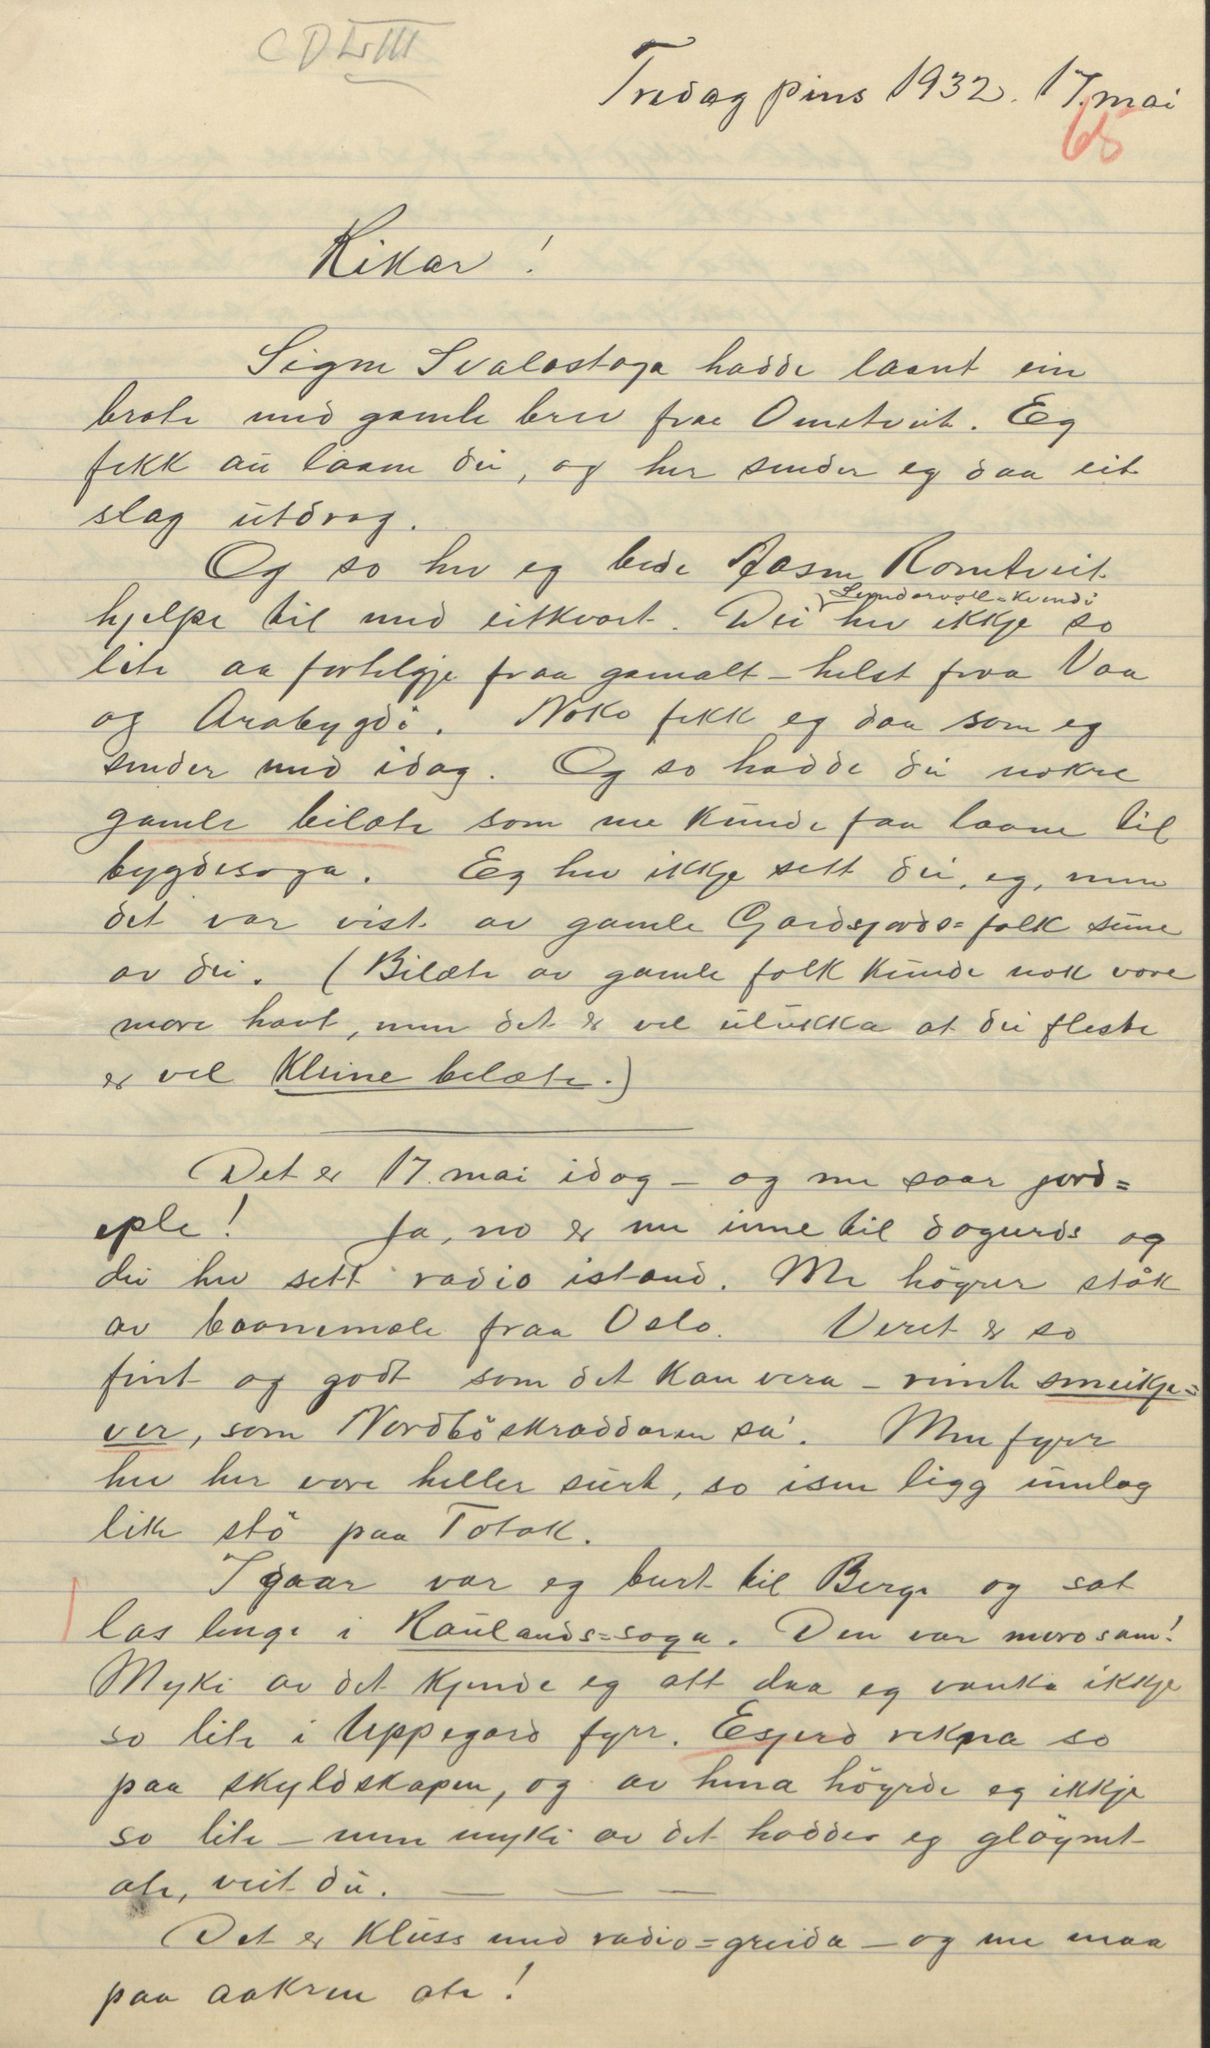 CDLVIII
Tredag pins 1932. 17. mai
65
Rikar!
Signe Svalastoga hadde laant ein
brote med gamle brev fraa Ometveit. Eg
fekk au laane dei, og her sender eg daa eit
slag utdrag.
Og so hev eg bede Aasne Romtveit
hjelpe til med eitkvart. Dei hev ikkje so
lite aa fortelgje fraa gamalt – helst fraa Vaa
og Arabygdi. Noko fekk eg daa som eg
sender med idag. Og so hadde dei nokre
gamle bilæte som me kunde faa laane til
bygdesoga. Eg hev ikkje sett dei, eg, men
det var vist av gamle Gardsjords=folk sume
av dei. (Bilæte av gamle folk kunde nok vore
more havt, men det er vel ulukka at dei fleste
er vel kleine belæte.)
Det er 17. mai idag – og me saar jord=
eple! Ja, no er me inne til dogurds og
dei hev sett radio istand. Me höyrer ståk
av baanemale fraa Oslo. Veret er so
fint og godt som det kan vera – reinte smeikje=
ver, som Nordböskraddaren sa'. Men fyrr
hev her vore heller surt, so isen ligg umlag
like stö paa Totak.
Igaar var eg burt til Berge og sat
las lenge i Raulands=soga. Den var morosam!
Myki av det kjende eg att daa eg vanka ikkje
so lite i Uppegard fyrr. Esjerd rekna so
paa skyldskapen, og av henna höyrde eg ikkje
so lite – men myki av det hadde eg glöymt
ate, veit du. — — —
Det er kluss med radio=greida – og me maa
paa aakren ate!